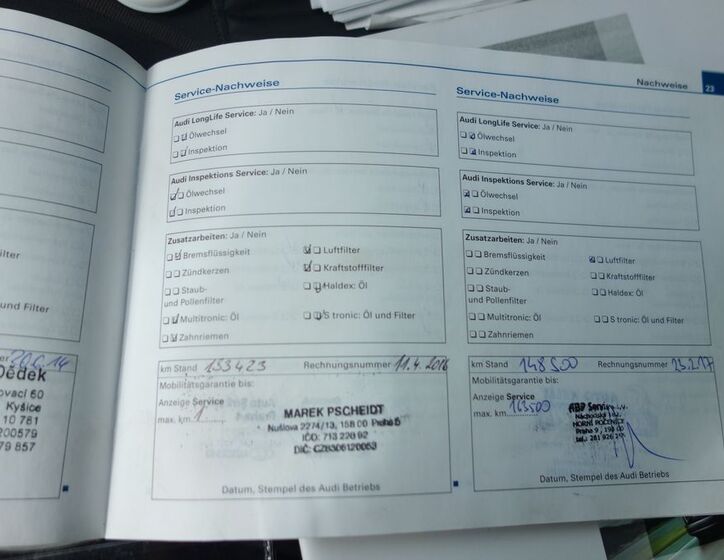 Nachweise
23
lter
und Filter
20.6.14
Dědek
ovací 60
Kyšice
10 781
200579
79 857
Service-Nachweise
Audi LongLife Service: Ja / Nein
Ölwechsel
Inspektion
Audi Inspektions Service: Ja / Nein
Ölwechsel
Inspektion
Zusatzarbeiten: Ja / Nein
Bremsflüssigkeit
Luftfilter
Zündkerzen
Kraftstofffilter
Staub-
und Pollenfilter
Haldex: Öl
Multitronic: Öl
S tronic: Öl und Filter
Zahnriemen
km Stand 153423 Rechnungsnummer 11.4.2016
Mobilitätsgarantie bis:
Anzeige Service
max. km
MAREK PSCHEIDT
Nušlova 2274/13, 158 00 Praha 5
IČO: 713 220 92
DIČ: CZ8306120053
Datum, Stempel des Audi Betriebs
Service-Nachweise
Audi LongLife Service: Ja / Nein
Ölwechsel
Inspektion
Audi Inspektions Service: Ja / Nein
Ölwechsel
Inspektion
Zusatzarbeiten: Ja / Nein
Bremsflüssigkeit
Luftfilter
Zündkerzen
Kraftstofffilter
Staub-
und Pollenfilter
Haldex: Öl
Multitronic: Öl
S tronic: Öl und Filter
Zahnriemen
km Stand 148500 Rechnungsnummer
Mobilitätsgarantie bis:
Anzeige Service
max. km 163500
HORNÍ POČERNICE
Praha 9, 193 00
Datum, Stempel des Audi Betriebs